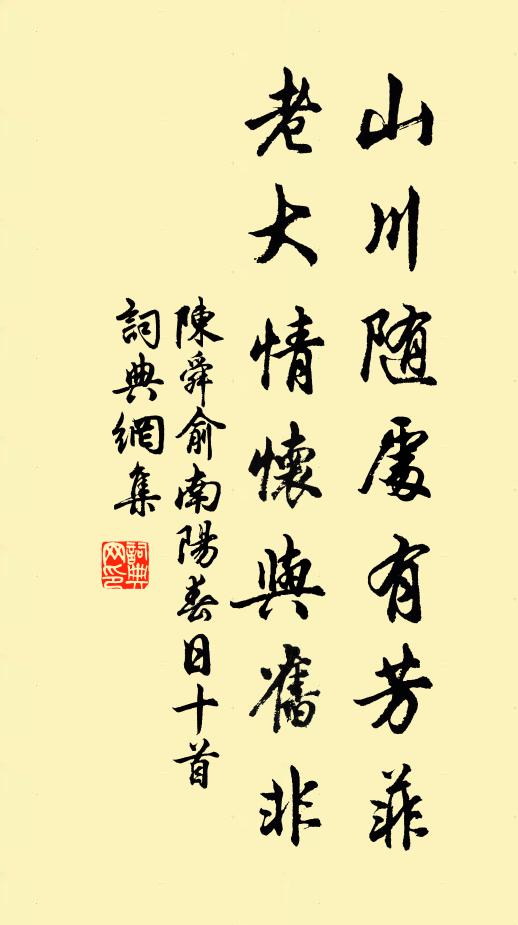 山川随處有芳菲
老大情懷與舊非
陳舜俞南陽春日十首
詞典網集
詞典網印